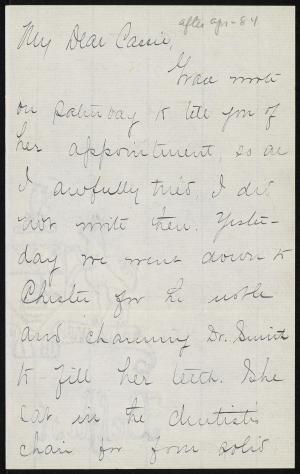 after apr-84
My Dear Cassie,
Grace wrote
on Saturday to tell you of
her appointment, so as
I awfully tired, I did
not write then. Yester-
day we went down to
Chester for the noble
and charming Dr. Smith
to fill her teeth. She
sat in the dentist's
chair for four solid